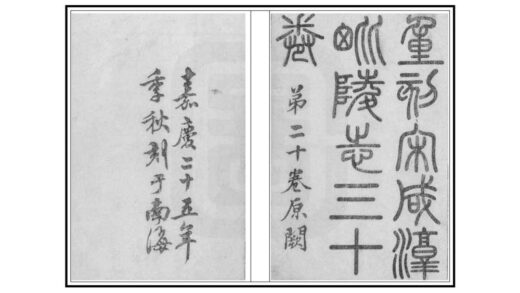 重刻宋咸淳
毗陵志三十
卷
第二十卷原闕
嘉慶二十五年
季秋刻于南海